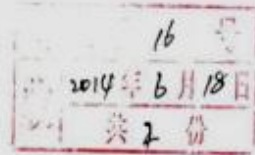 16 号
2014年6月18日
共2份